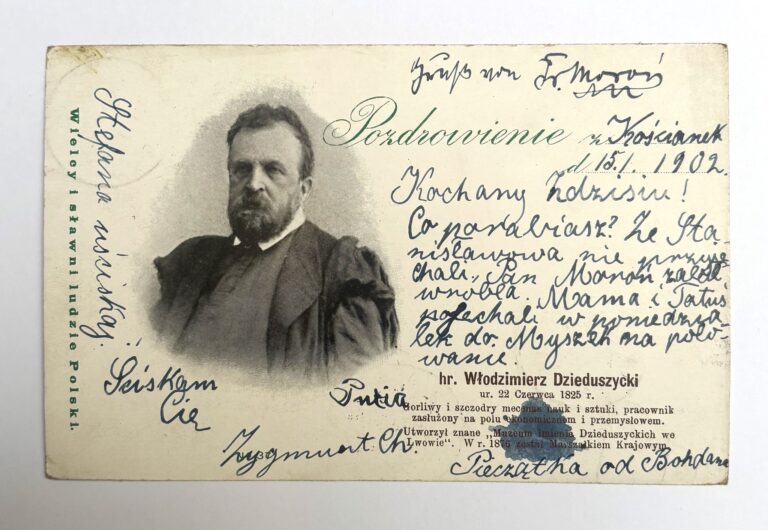 Gruß von Fr. Moroń
Pozdrowienie z Kościanek
d 15./1. 1902.
Kochany Zdzisiu!
Co porabiasz? Ze Sta-
nisławowa nie przyje-
chali. Pan Moroń zabił
wróbla. Mama i Tatuś
pojechali w poniedzia-
łek do Myszek na polo-
wanie.
Stefana uściskaj.
Ściskam
Cię
Zygmunt Ch.
Wielcy i sławni ludzie Polski.
hr. Włodzimierz Dzieduszycki
ur. 22 Czerwca 1825 r.
Gorliwy i szczodry mecenas nauk i sztuki, pracownik
zasłużony na polu ekonomicznem i przemysłowem.
Utworzył znane „Muzeum imienia Dzieduszyckich we
Lwowie“. W r. 1876 został Marszałkiem Krajowym.
Pieczątka od Bohdana